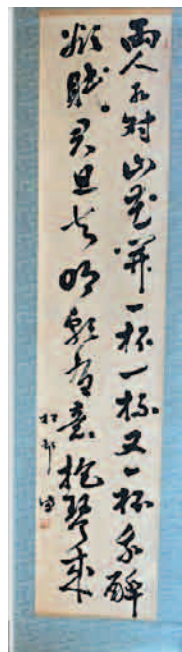 兩人相対山花開一杯一杯又一杯我醉
欲眠君且去明朝有意抱琴来